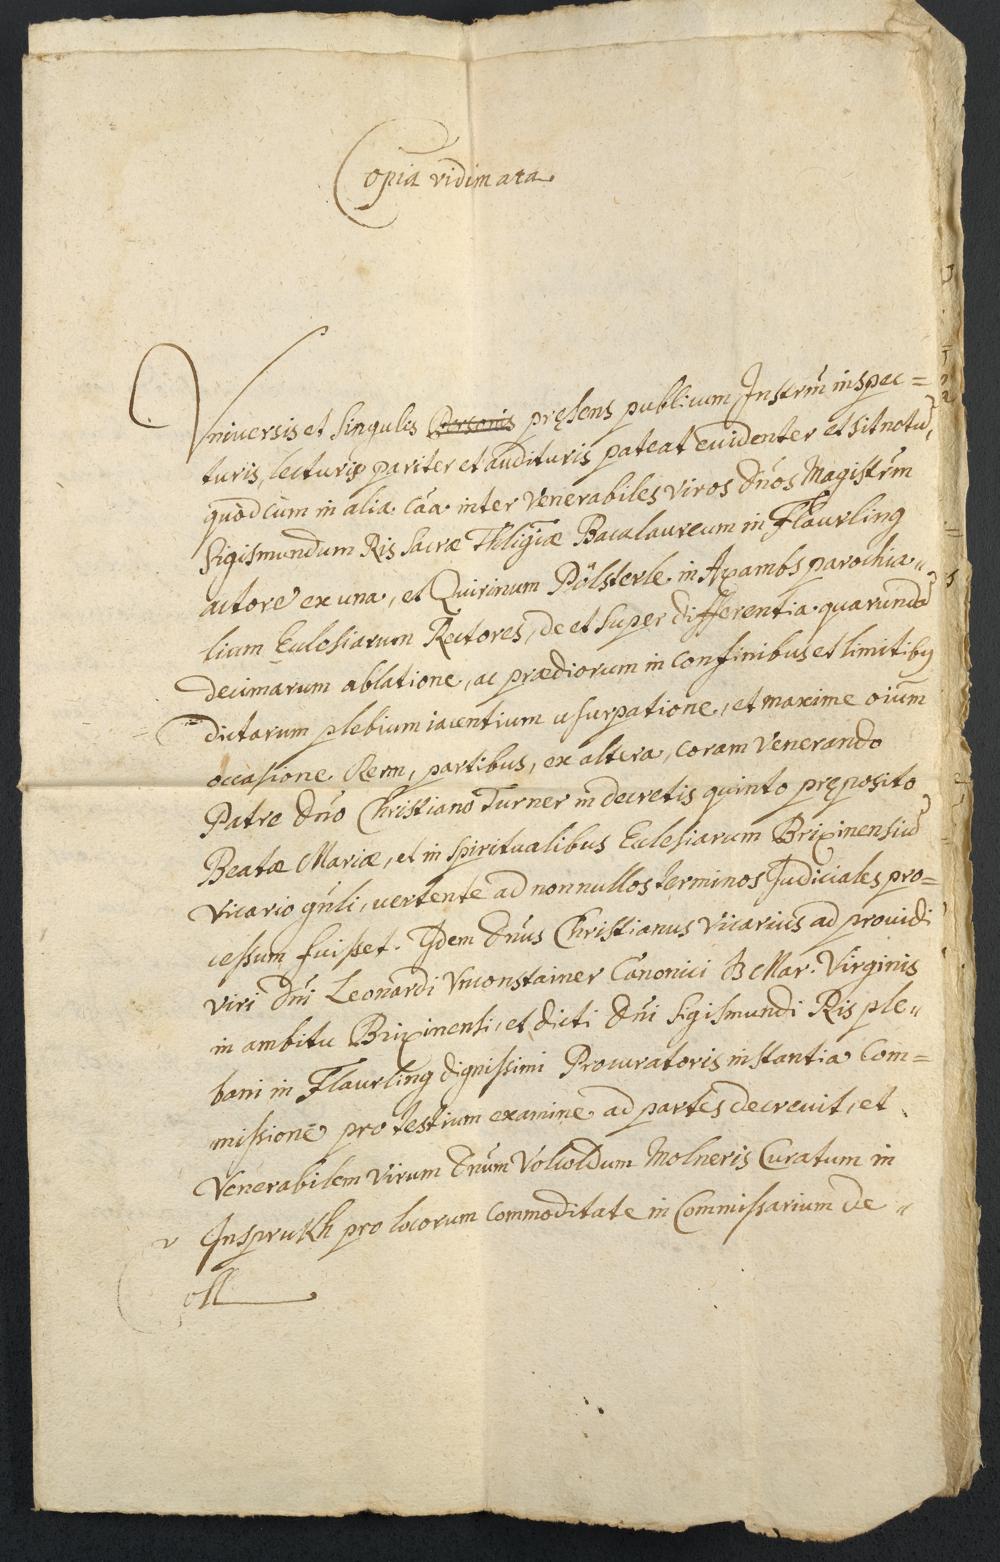 Copia vidimata.
Vniversis et singulis Personis pręsens publicum Instrm̃ inspec=
turis, lecturis pariter et audituris pateat euidenter et sit notū,
quòd cùm in alia cãa inter Venerabiles viros Dños Magistrm̃
Sigismundum Ris Sacræ Thligiæ Bacalaureum in Flaurling
actore ex una, et Quirinum Pölsterle in Axambs parochia„
lium Ecclesiarum Rectores, de et super differentia quarundā
decimarum ablatione, ac prædiorum in confinibus et limitibus
dictarum plebium iacentium usurpatione, et maxime oium̃
occasione Rerm, partibus, ex altera, coram Venerando
Patre Dño Christiano Turner in decretis quinto pręposito
Beatæ Mariæ, et in spiritualibus Ecclesiarum Brixinensiū
Vicario gñli, vertente ad nonnullos terminos Judiciales pro=
cessum fuisset. Idem Dñus Christianus Vicarius ad prouidi
viri Dñi Leonardi Vnconstainer Canonici B Mar. Virginis
in ambitu Brixinensi, et dicti Dñi Sigismundi Ris ple„
bani in Flaurling dignissimi Procuratoris instantia Com=
missionē pro testium examine ad partes decreuit, et
Venerabilem Virum Dnūm Volcoldum Molneris Curatum in
Insprukh pro locorum commoditate in Commissarium de„